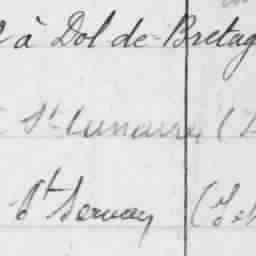 à Dol de Bretag
St-Lunaire (
St Servan (